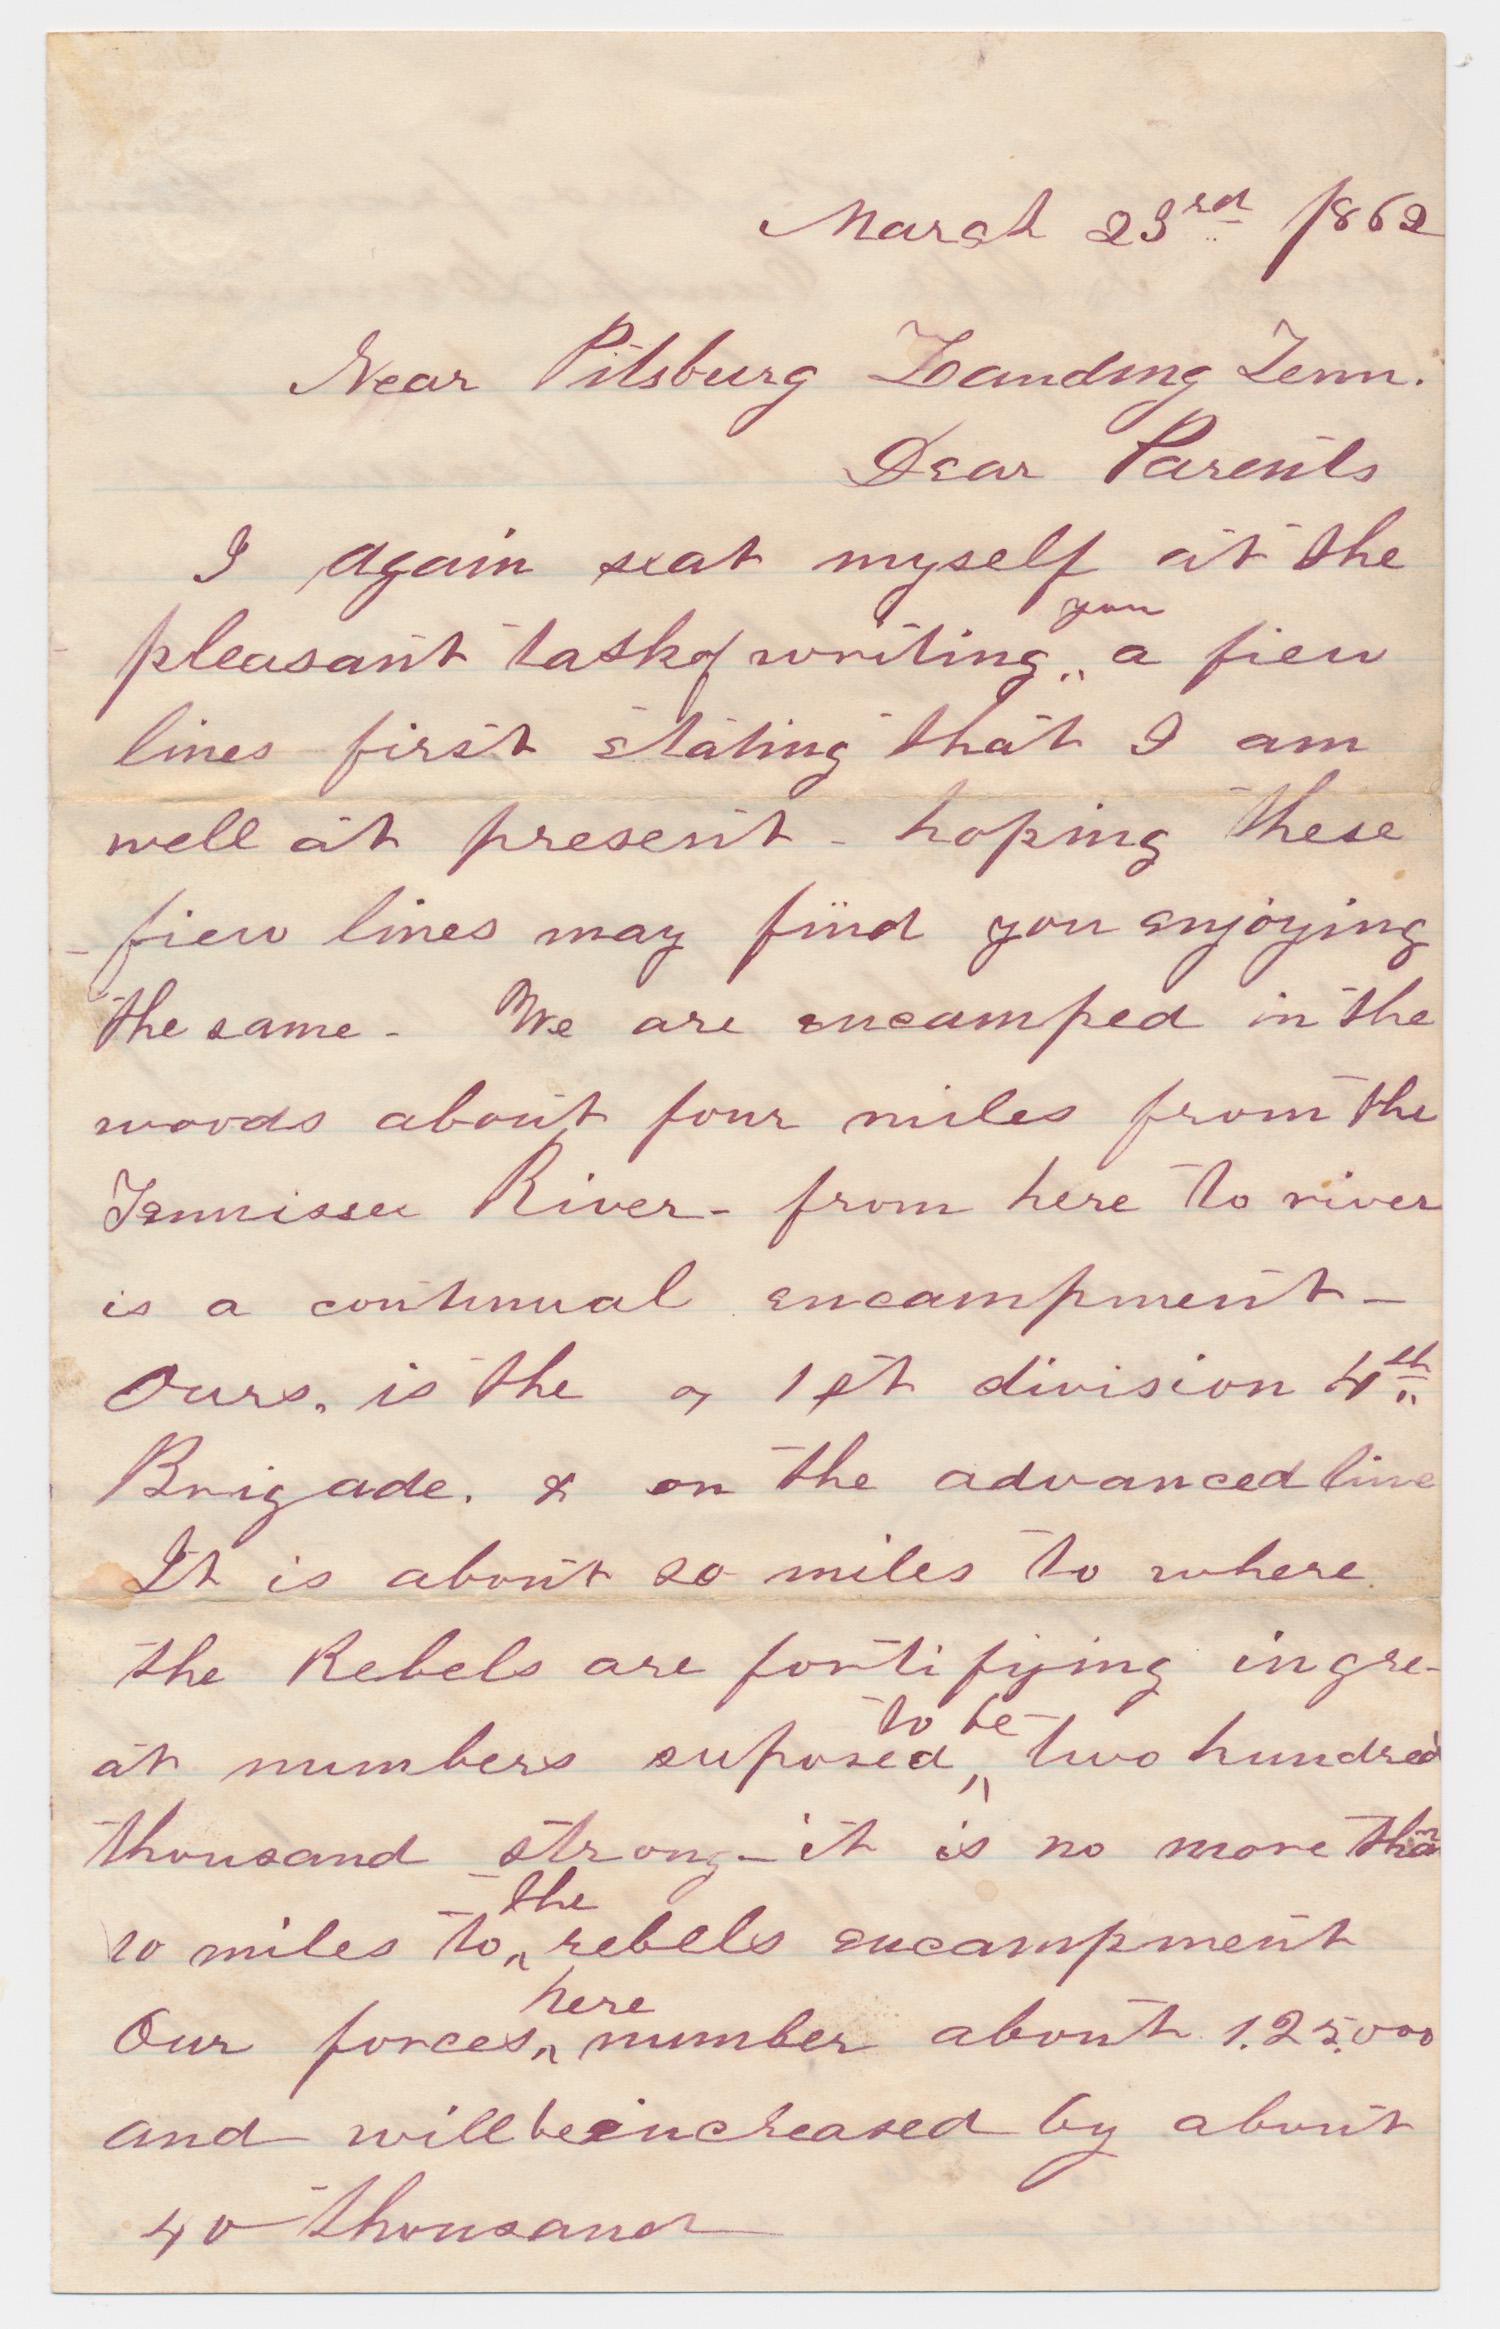 March 23rd 1862
Near Pitsburg Landing Tenn.
Dear Parents
I again seat myself at the
pleasant task of writing you a fiew
lines first stating that I am
well at present - hoping these
fiew lines may find you enjoying
the same - We are encamped in the
woods about four miles from the
Tennissee River - from here to river
is a continual encampment -
Ours. is the 1st division 4th
Brigade. & on the advanced line
It is about 20 miles to where
the Rebels are fortifying in gre-
at numbers suposed to be two hundred
thousand strong - it is no more than
10 miles to the rebels encampment
Our forces here number about 125,000
and will be increased by about
40 thousand